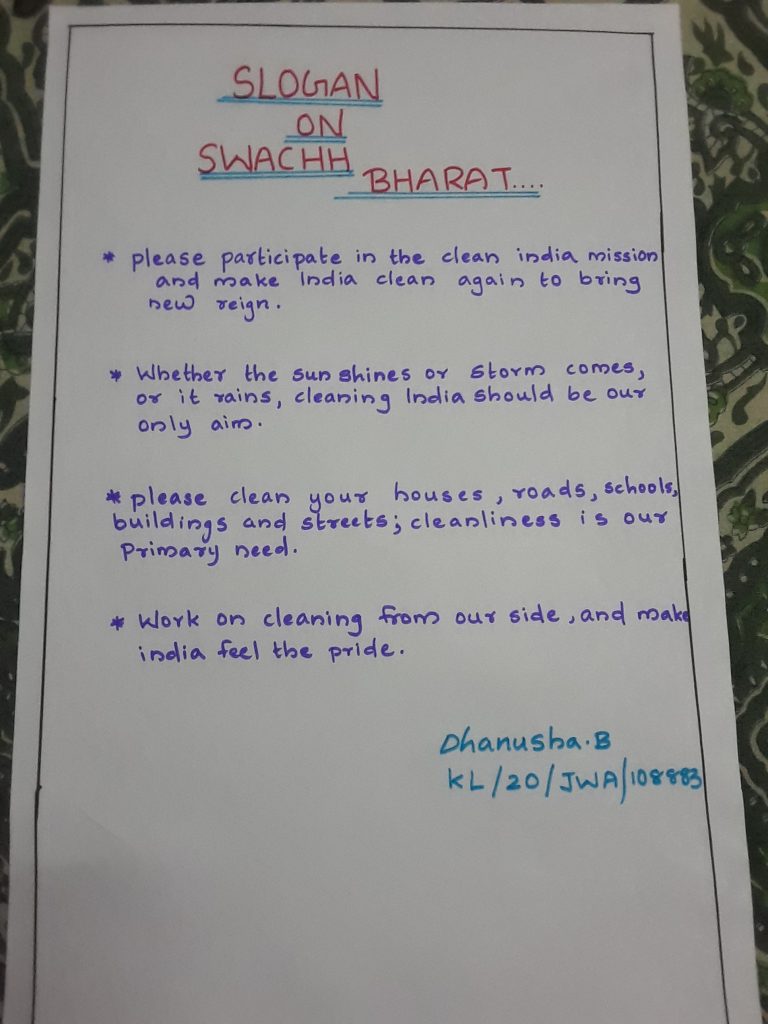 SLOGAN
ON
SWACHH
BHARAT....
* please participate in the clean india mission
and make India clean again to bring
new reign.
* Whether the sun shines or storm comes,
or it rains, cleaning India should be our
only aim.
* please clean your houses, roads, schools,
buildings and streets; cleanliness is our
Primary need.
* Work on cleaning from our side, and make
india feel the pride.
Dhanusha.B
KL/20/JWA/108883